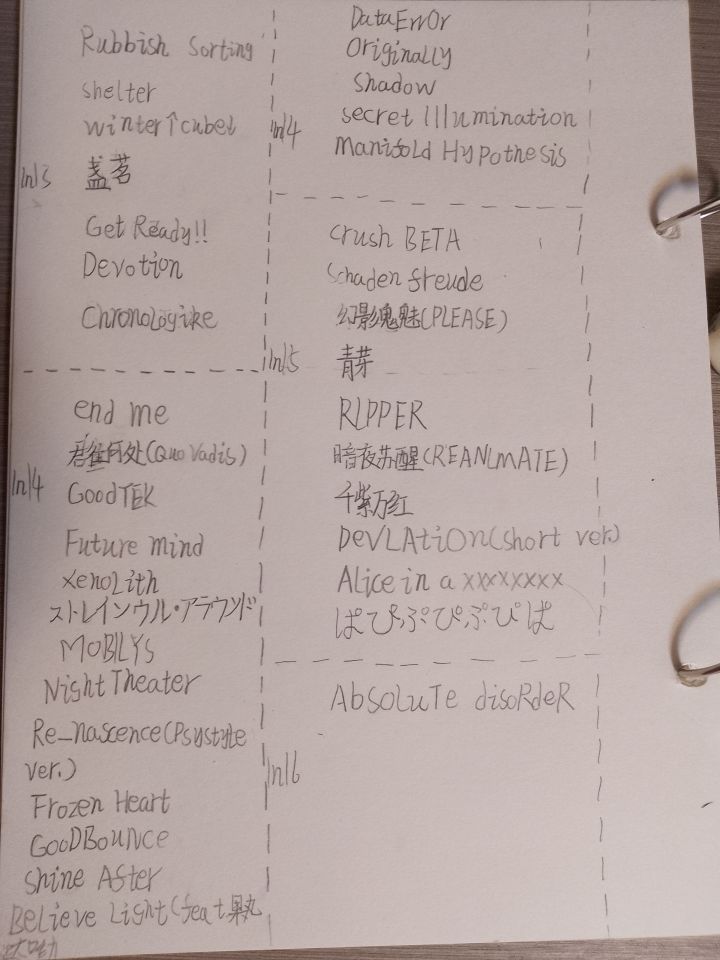 Rubbish Sorting
shelter
winter↑cube↓
In13
盏茗
Get Ready!!
Devotion
Chronologike
end me
君往何处(Quo Vadis)
In14
GoodTEK
Future mind
XenoLith
ストレインウル・アラウンド
MOBILYS
Night Theater
Re_nascence(Psystyle
ver.)
Frozen Heart
GOODBOUNCE
Shine After
Believe Light(feat.
DataErr0r
Originally
Shadow
secret Illumination
In14
Manifold Hypothesis
Crush BETA
Schadenfreude
幻影魂魅(PLEASE)
In15
青芽
RIPPER
暗夜苏醒(REANIMATE)
千紫万红
DeVIAtiOn(short ver.)
Alice in a xxxxxxxx
ぱぴぷぴぷぴぱ
AbsoLuTe disoRdeR
In16